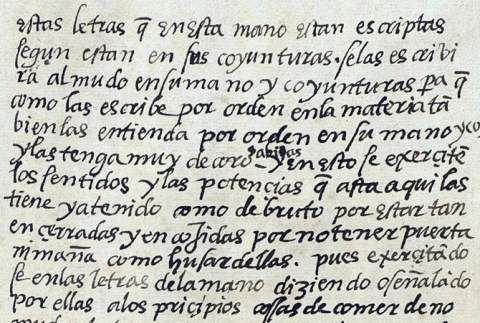 estas letras q̃ en esta mano estan escriptas
segun estan en sus coyunturas. se las escribi
ra al mudo en su mano y coyunturas pa q̃
como las escribe por orden en la materia tã
bien las entienda por orden en su mano y co
y las tenga muy de coro sabidas y en esto se exerçitẽ
los sentidos y las potencias q̃ asta aqui las
tiene y a tenido como de bruto por estar tan
en çerradas y en cogidas por no tener puerta
ni mana como husar dellas. pues exerçitãdo
se en las letras de la mano diziendo o señalãdo
por ellas a los prĩçipios cossas de comer de no